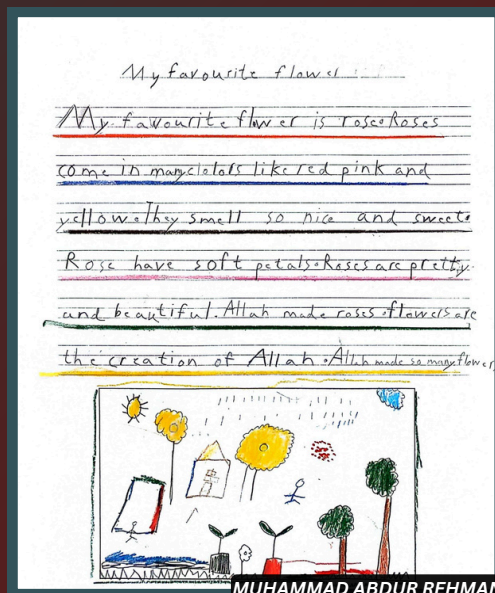 My favourite flower
My favourite flower is rose. Roses
come in many colors like red pink and
yellow. They smell so nice and sweet.
Rose have soft petals. Roses are pretty
and beautiful. Allah made roses. flowers are
the creation of Allah. Allah made so many flower
MUHAMMAD ABDUR REHMAN